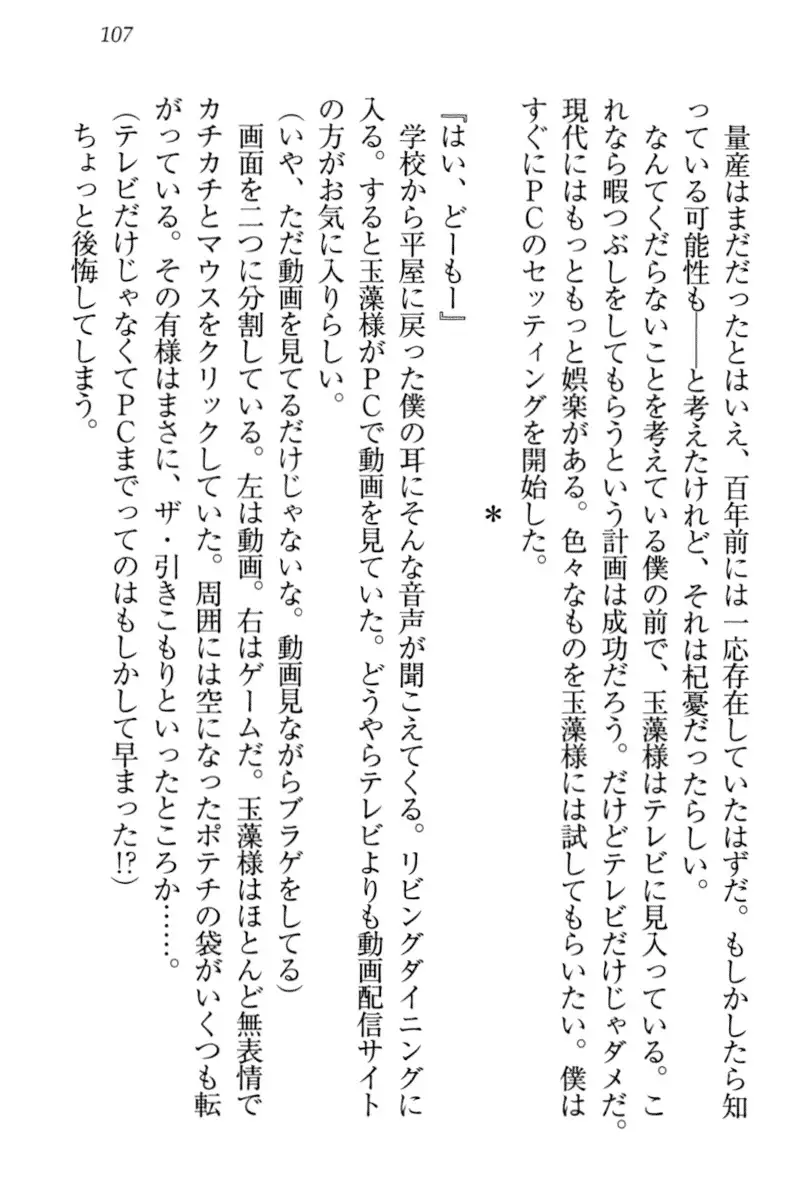 107
量産はまだだったとはいえ、百年前には一応存在していたはずだ。もしかしたら知
っている可能性も――と考えたけれど、それは杞憂だったらしい。
なんてくだらないことを考えている僕の前で、玉藻様はテレビに見入っている。こ
れなら暇つぶしをしてもらうという計画は成功だろう。だけどテレビだけじゃダメだ。
現代にはもっともっと娯楽がある。色々なものを玉藻様には試してもらいたい。僕は
すぐにPCのセッティングを開始した。
＊
『はい、どーもー』
学校から平屋に戻った僕の耳にそんな音声が聞こえてくる。リビングダイニングに
入る。すると玉藻様がPCで動画を見ていた。どうやらテレビよりも動画配信サイト
の方がお気に入りらしい。
（いや、ただ動画を見てるだけじゃないな。動画見ながらブラゲをしてる）
画面を二つに分割している。左は動画。右はゲームだ。玉藻様はほとんど無表情で
カチカチとマウスをクリックしていた。周囲には空になったポテチの袋がいくつも転
がっている。その有様はまさに、ザ・引きこもりといったところか……。
（テレビだけじゃなくてPCまでってのはもしかして早まった!?）
ちょっと後悔してしまう。